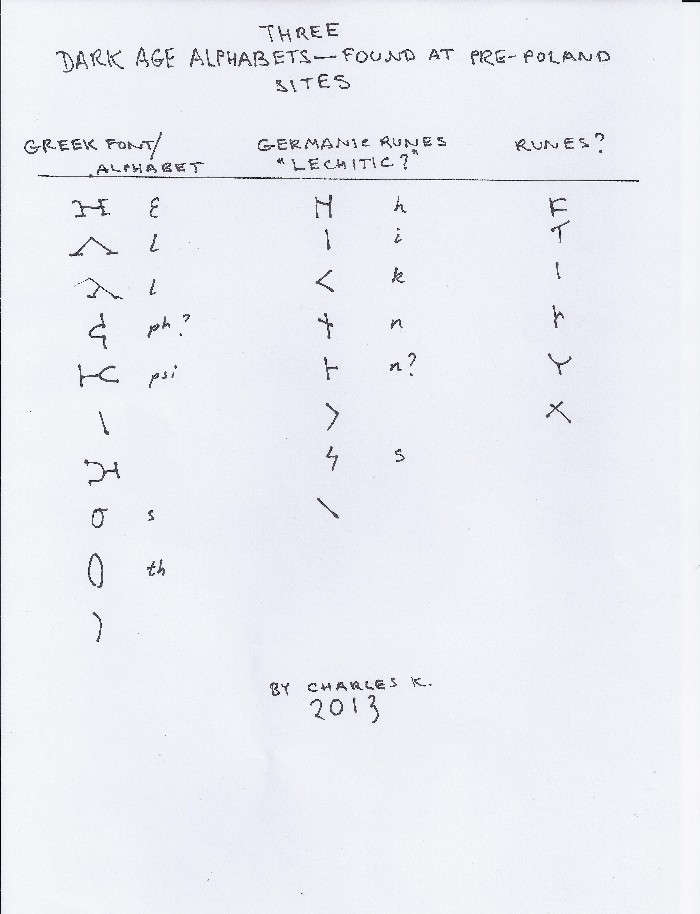 THREE
DARK AGE ALPHABETS—FOUND AT PRE-POLAND
SITES
GREEK FONT/
ALPHABET
GERMANIC RUNES
"LECHITIC?"
RUNES?
ε h F
Λ l | i T
λ l < k |
ph? n
psi n? Y
\ > X
s
σ s \
0 th
)
BY CHARLES K.
2013